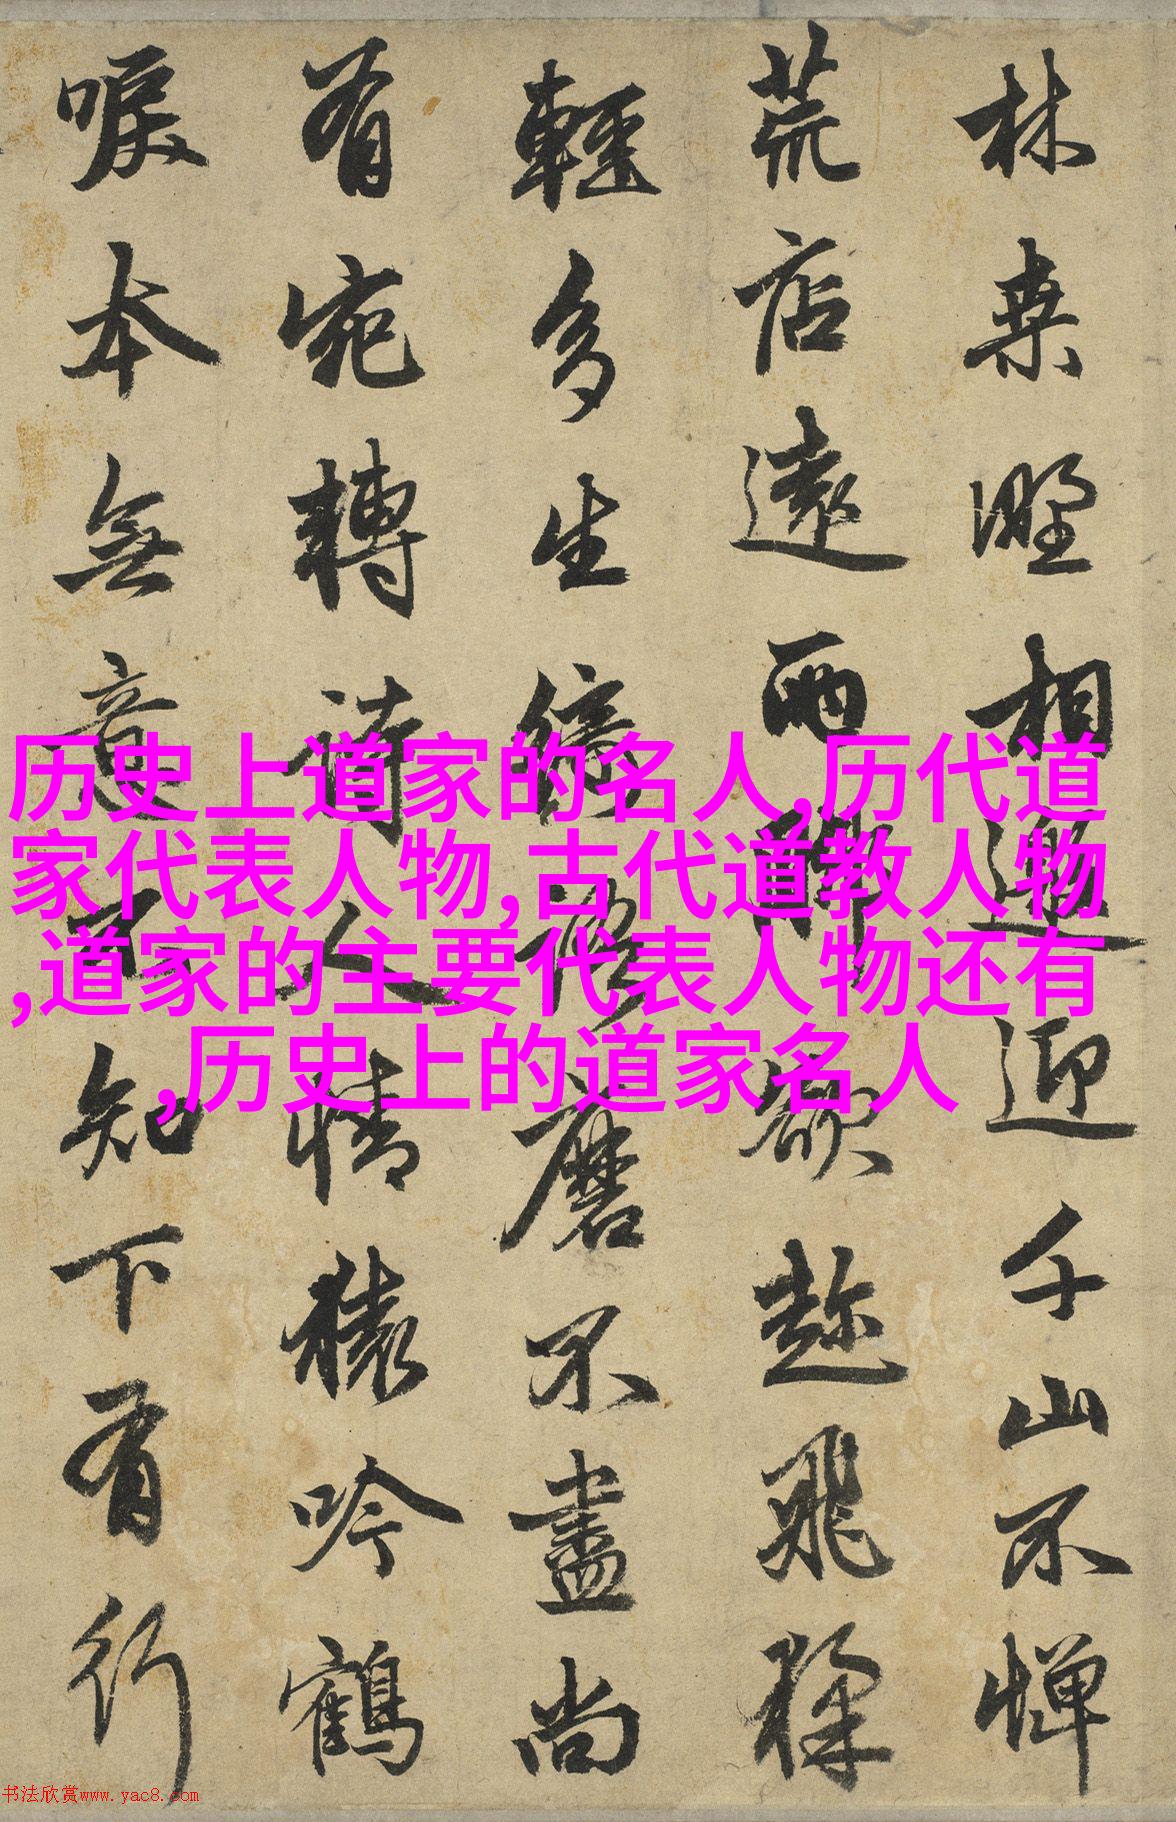 林桒野相邀迎千山不憚
荒店遠兩脚欲趂飛猱
輕多生綺語磨不盡尚
有宛轉詩人情猿吟鶴
唳本無意不知下有行
历史上道家的名人,历代道
家代表人物,古代道教人物
,道家的主要代表人物还有
,历史上的道家名人
书法欣赏www.yac8.com